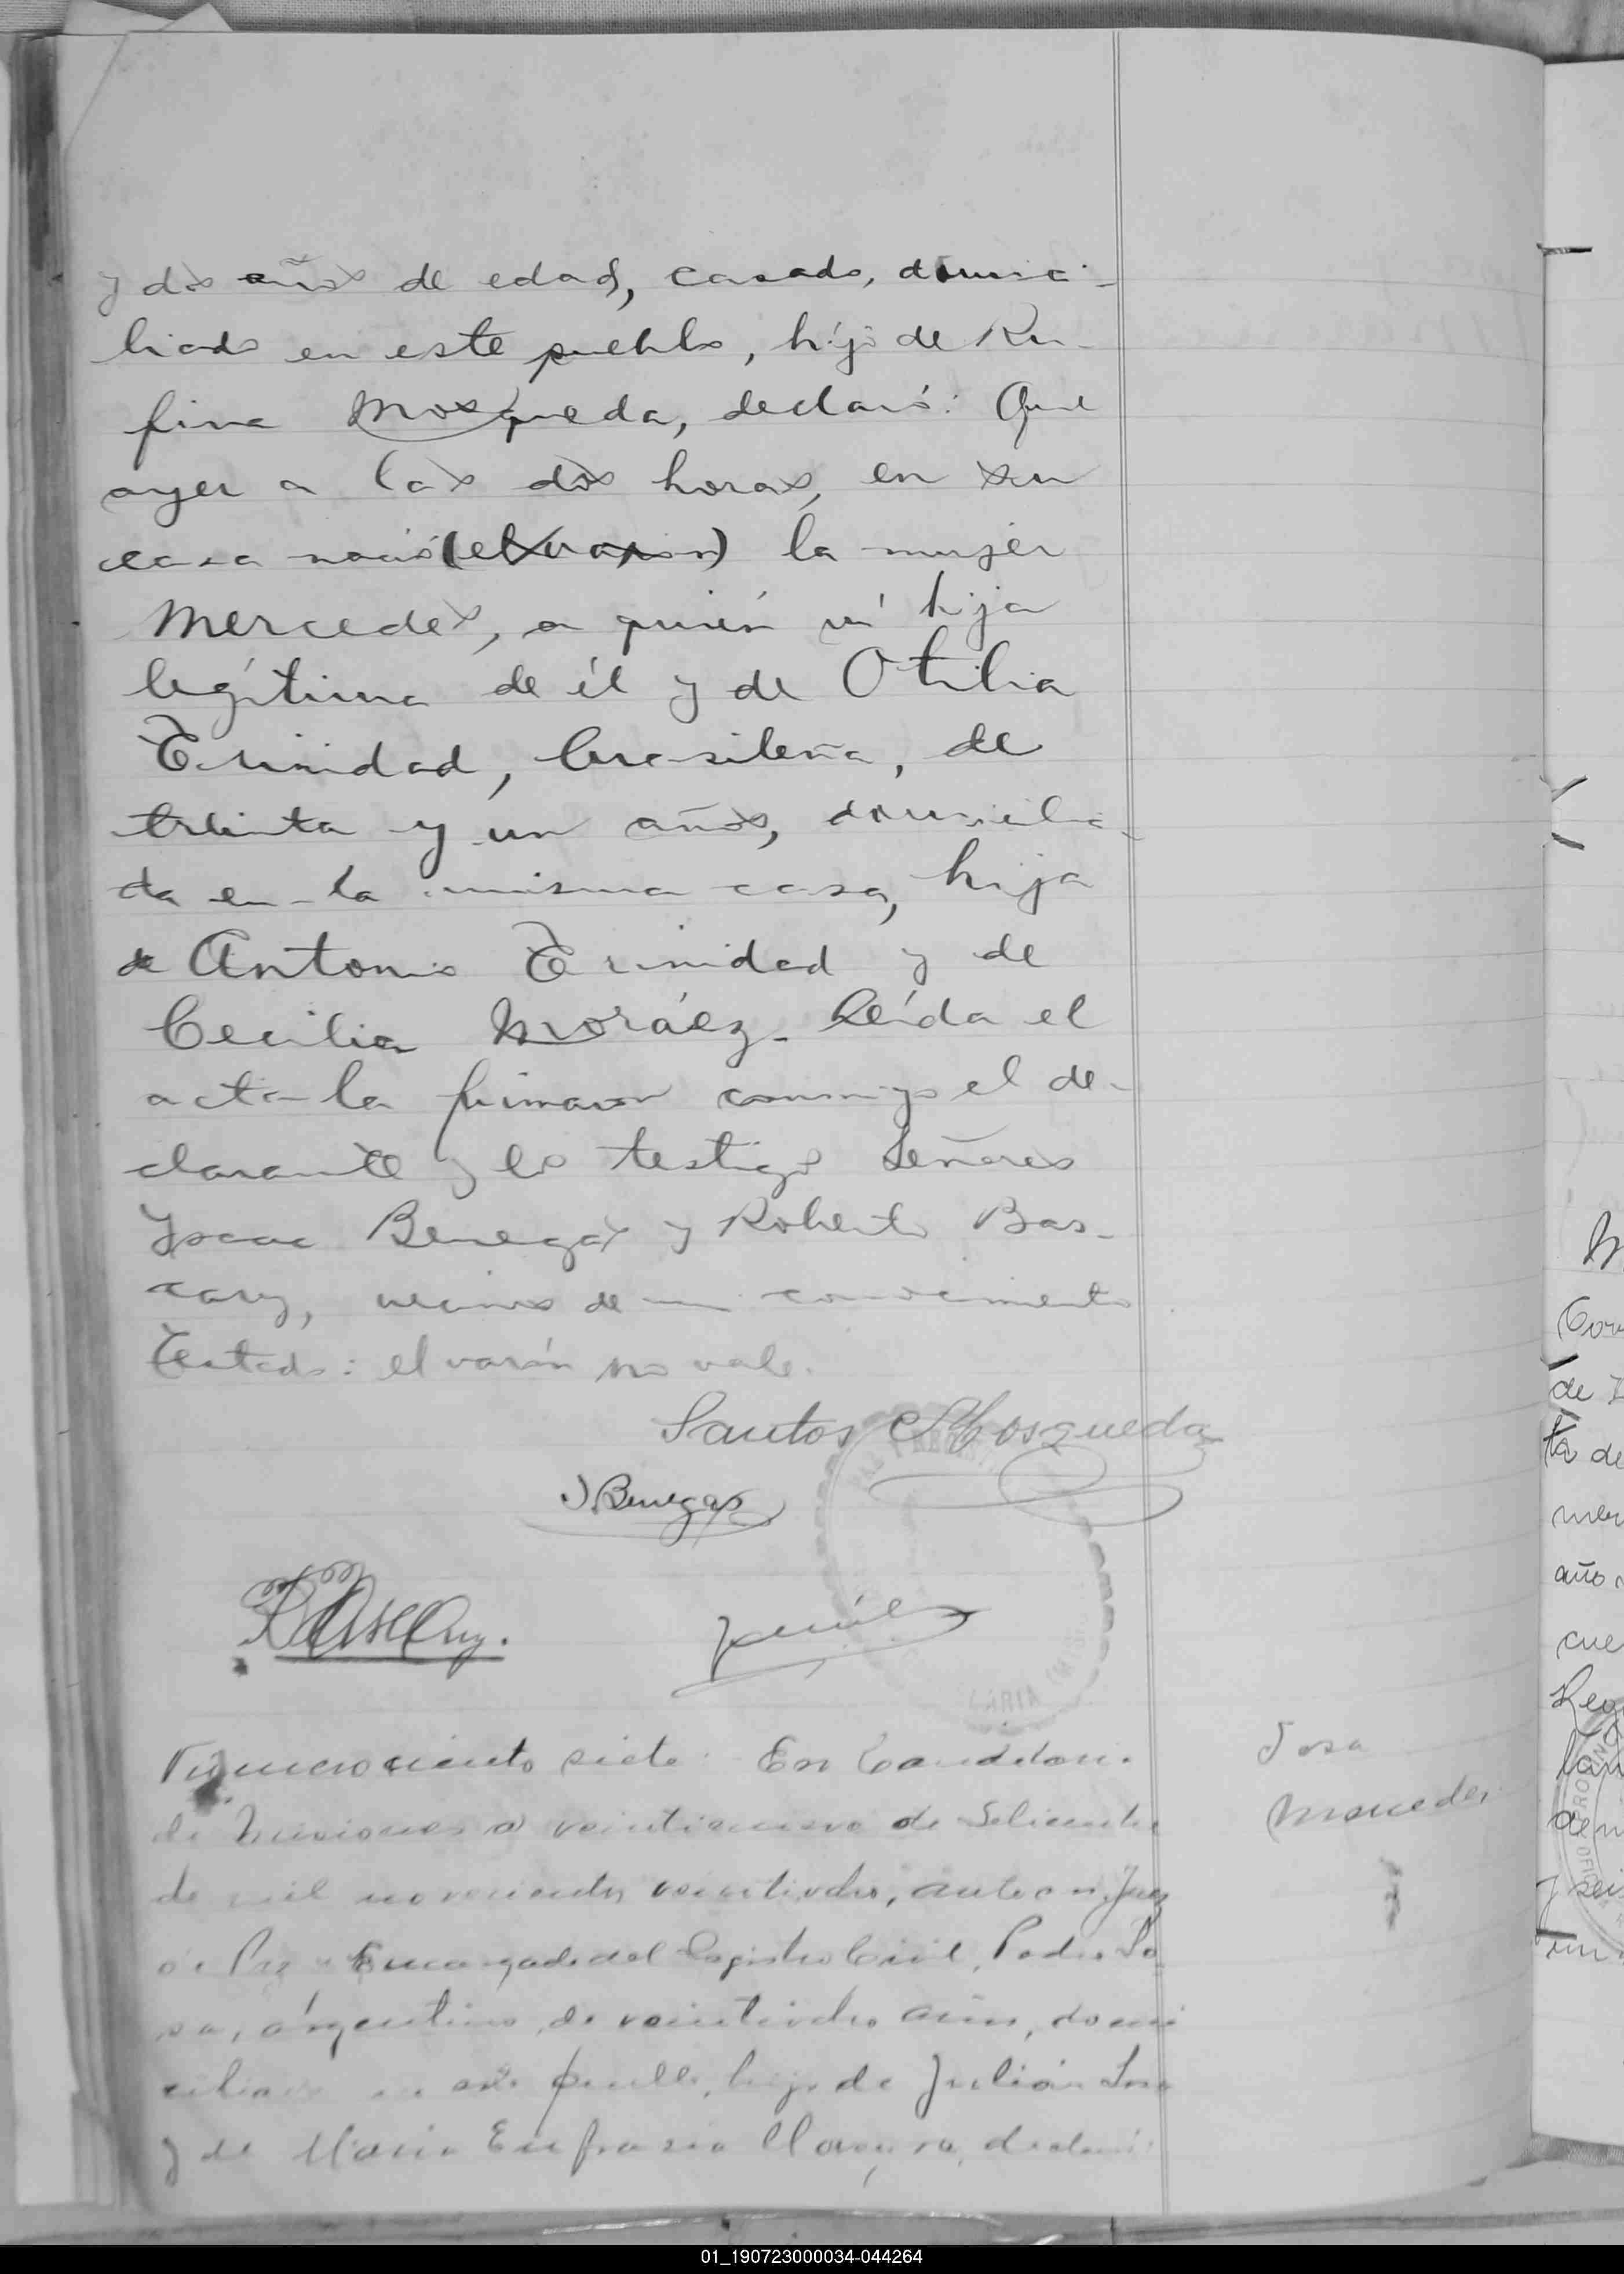 y dos años de edad, casado, domici-
liado en este pueblo, hijo de Ru-
fina Mosqueda, declaró: Que
ayer a las dos horas, en su
casa nació (el varon) la mujer
Mercedes, a quién vi hija
legítima de él y de Otilia
Trinidad, brasileña, de
treinta y un años, domicilia-
da en la misma casa, hija
de Antonio Trinidad y de
Cecilia Moráez. Leída el
acta la firmaron conmigo el de-
clarante y los testigos Señores
Ysaac Benegas y Roberto Bas-
cary, vecinos de mi conocimiento
Testado: el varón no vale.
Santos Mosqueda
J. Benegas
RBascary.
LARIA
Numero ciento siete: En Candelaria
de Misiones a veintinueve de Setiembre
de mil novecientos veintiocho, ante mi, Juez
de Paz y Encargado del Registro Civil, Pedro So
sa, argentino, de veintiocho años, domi
ciliado en este pueblo, hijo de Julián Sosa
y de Maria Eufrasia declaró:
Sosa
Mercedes
01_190723000034-044264